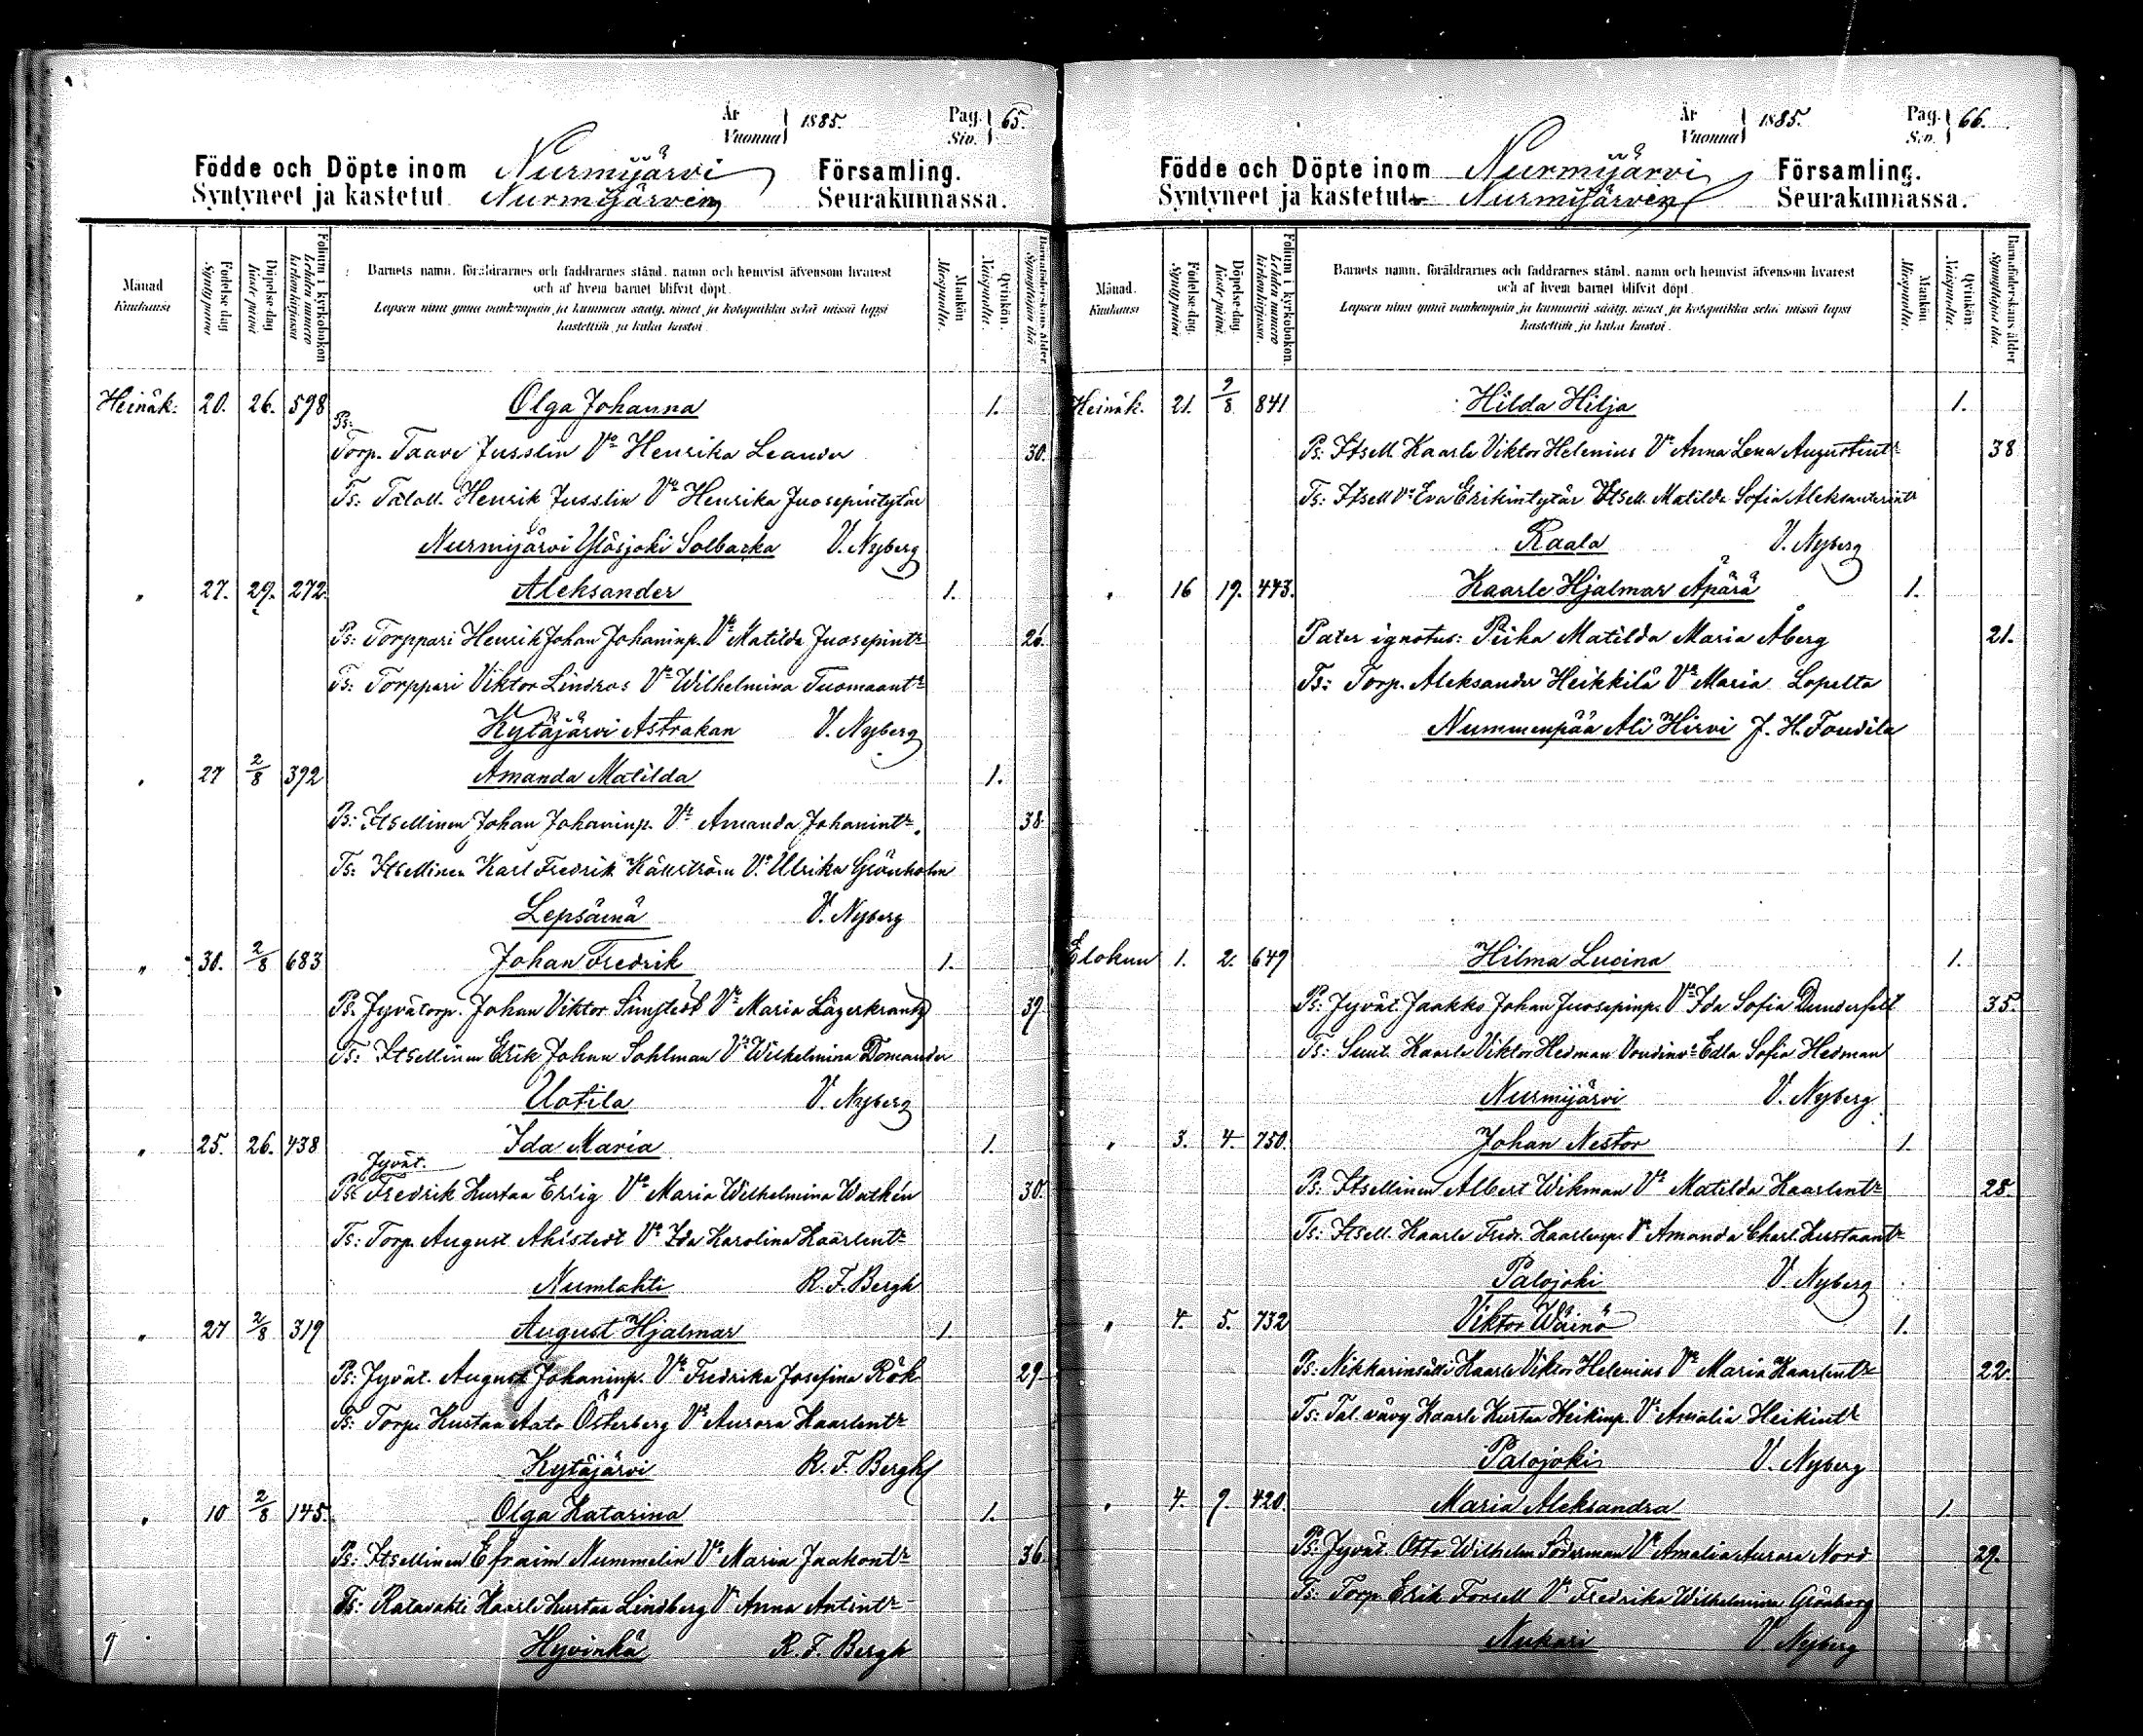 År Vuonna } 1885. Pag. Siv. } 65.
Födde och Döpte inom Nurmijärvi Församling.
Syntyneet ja kastetut Nurmijärven Seurakunnassa.
Månad Kuukausi
Födelse-dag Syntymäpäivä
Döpelse-dag Kastepäivä
Folium i kyrkoboken Lehden numero kirkonkirjassa
Barnets namn, föräldrarnes och faddrarnes stånd, namn och hemvist äfvensom hvarest
och af hvem barnet blifvit döpt.
Lapsen nimi ynnä vanhempain ja kummein sääty, nimet ja kotopaikka sekä missä lapsi
kastettiin ja kuka kastoi.
Mankön Miespuolia.
Qvinkön. Naispuolia.
Barnaföderskans ålder
Heinäk. 20. 26. 598 Olga Johanna 1.
Ps:
Torp. Taavi Jusslin Vo Henrika Leander 30.
Ts: Taloll. Henrik Jusslin Vo Henrika Juosepintytär
Nurmijärvi Ylösjoki Solbacka V. Nyberg
" 27. 29. 272. Aleksander 1.
Ps: Torppari Henrik Johan Johaninp. Vo Matilda Juosepintr 26.
Ts: Torppari Viktor Lindros Vo Wilhelmina Tuomaantr
Kytäjärvi Astrakan V. Nyberg
" 27 2/8 392 Amanda Matilda 1.
Ps: Itsellinen Johan Johaninp. Vo Amanda Johanintr. 38.
Ts: Itsellinen Karl Fredrik Källström Vo Ulrika Grönholm
Lepsämä V. Nyberg
" 30. 2/8 683 Johan Fredrik 1.
Ps. Jyvätorp. Johan Viktor Vo Maria Lägerkrantz 39
Ts: Itsellinen Erik Johan Sohlman Vo Wilhelmina Domander
Uotila V. Nyberg
" 25. 26. 438 Ida Maria 1.
Jyvät.
Ps: Fredrik Kustaa Erlig Vo Maria Wilhelmina Wathén 30.
Ts: Torp. August Ahlstedt Vo Ida Karolina Kaarlentr
Numlahti R. F. Bergh
" 27 2/8 319 August Hjalmar 1
Ps: Jyvät. August Johaninp. Vo Fredrika Josefina Rök 29
Ts: Torp. Kustaa Aato Österberg Vo Aurora Kaarlentr
Kytäjärvi R. F. Bergh
" 10 2/8 145. Olga Katarina 1.
Ps: Itsellinen Efraim Nummelin Vo Maria Jaakontr 36
Ts: Ratavahti Kaarle Kustaa Lindberg Vo Anna Antintr
Hyvinkä R. F. Bergh
År Vuonna } 1885. Pag. Siv. } 66.
Födde och Döpte inom Nurmijärvi Församling.
Syntyneet ja kastetut Nurmijärven Seurakunnassa.
Månad. Kuukausi
Födelse-dag. Syntymäpäivä
Döpelse-dag. Kastepäivä
Folium i kyrkoboken. Lehden numero kirkonkirjassa.
Barnets namn, föräldrarnes och faddrarnes stånd, namn och hemvist äfvensom hvarest
och af hvem barnet blifvit döpt.
Lapsen nimi ynnä vanhempain ja kummein sääty, nimet ja kotopaikka sekä missä lapsi
kastettiin ja kuka kastoi.
Mankön. Miespuolia.
Qvinkön. Naispuolia.
Barnaföderskans ålder
Heinäk. 21. 9/8 841 Hilda Hilja 1.
Ps: Itsell. Kaarle Viktor Helenius Vo Anna Lena Augustintr 38
Ts: Itsell Vo Eva Erikintytär Itsell. Matilda Sofia Aleksanterintr
Raala V. Nyberg
" 16 19. 443. Kaarle Hjalmar Äpärä 1.
Pater ignotus: Piika Matilda Maria Åberg 21.
Ts: Torp. Aleksander Heikkilä Vo Maria Lopelta
Nummenpää Ali Hirvi J. H. Foudila
Elokuu 1. 2. 649 Hilma Lucina 1.
Ps: Jyvät. Jaakko Johan Juosepinp. Vo Ida Sofia Dunderfelt 35.
Ts: Suut. Kaarle Viktor Hedman Edla Sofia Hedman
Nurmijärvi V. Nyberg
" 3. 4. 750. Johan Nestor 1.
Ps: Itsellinen Albert Wikman Vo Matilda Kaarlentr 28.
Ts: Itsell. Kaarle Fredr. Kaarlenp. Vo Amanda Charl. Kustaantr
Palojoki V. Nyberg
" 4. 5. 732 Viktor Wäinö 1.
Ps: Nikkarinsälli Kaarle Viktor Helenius Vo Maria Kaarlentr 22.
Ts: Tal. vävy Kaarle Kustaa Heikinp. Vo Amalia Heikintr
Palojoki V. Nyberg
" 4. 9. 420. Maria Aleksandra 1.
Ps: Jyvät. Otto Wilhelm Söderman Vo Amalia Aurora Nord 29.
Ts: Torp. Erik Forsell Vo Fredrika Wilhelmina Grönberg
Nukari V. Nyberg